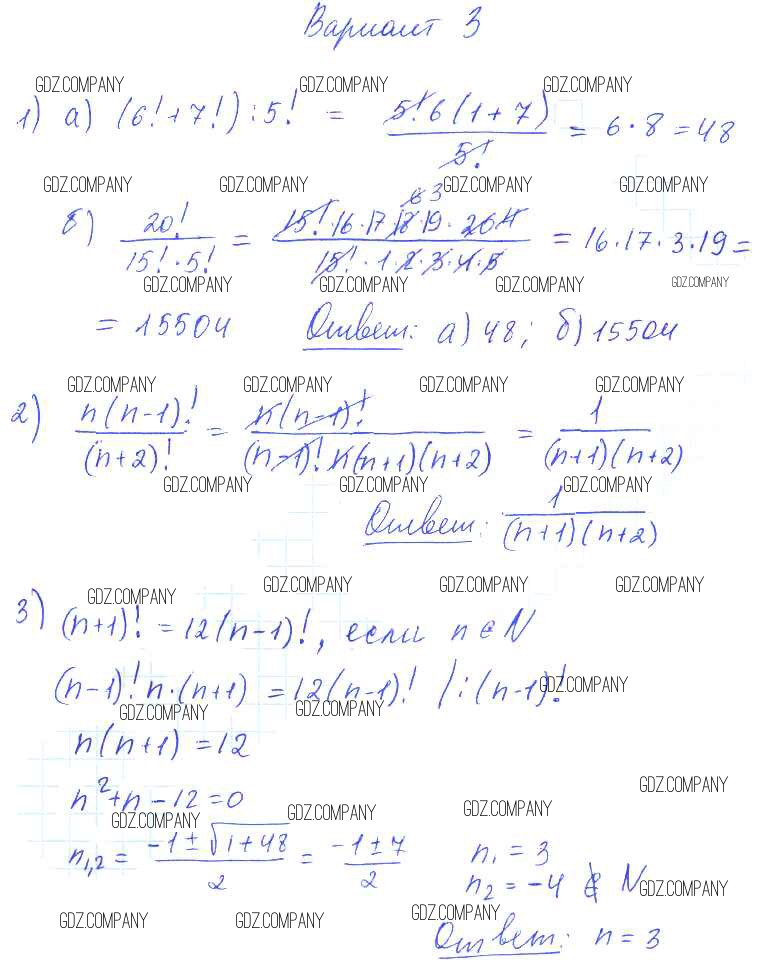 Вариант 3
GDZ.COMPANY GDZ.COMPANY GDZ.COMPANY
1) а) (6! + 7!) : 5! = 5! 6 (1 + 7) / 5! = 6 · 8 = 48
GDZ.COMPANY GDZ.COMPANY GDZ.COMPANY GDZ.COMPANY
б) 20! / 15! · 5! = 15! · 16 · 17 · 18 6 3 · 19 · 20 4 / 15! · 1 · 2 · 3 · 4 · 5 = 16 · 17 · 3 · 19 =
GDZ.COMPANY GDZ.COMPANY GDZ.COMPANY GDZ.COMPANY
= 15504 Ответ: а) 48; б) 15504
GDZ.COMPANY GDZ.COMPANY GDZ.COMPANY GDZ.COMPANY
2) n (n-1)! / (n+2)! = n (n-1)! / (n-1)! n (n+1) (n+2) = 1 / (n+1) (n+2)
GDZ.COMPANY GDZ.COMPANY GDZ.COMPANY
Ответ: 1 / (n+1) (n+2)
GDZ.COMPANY GDZ.COMPANY GDZ.COMPANY GDZ.COMPANY
3) (n+1)! = 12 (n-1)!, если n ∈ N
(n-1)! n · (n+1) = 12 (n-1)! / : (n-1)!
GDZ.COMPANY GDZ.COMPANY GDZ.COMPANY
n (n+1) = 12
n² + n - 12 = 0
GDZ.COMPANY GDZ.COMPANY GDZ.COMPANY GDZ.COMPANY
n1,2 = -1 ± √1+48 / 2 = -1 ± 7 / 2 n1 = 3
n2 = -4 ∉ N
GDZ.COMPANY
GDZ.COMPANY GDZ.COMPANY GDZ.COMPANY
Ответ: n = 3